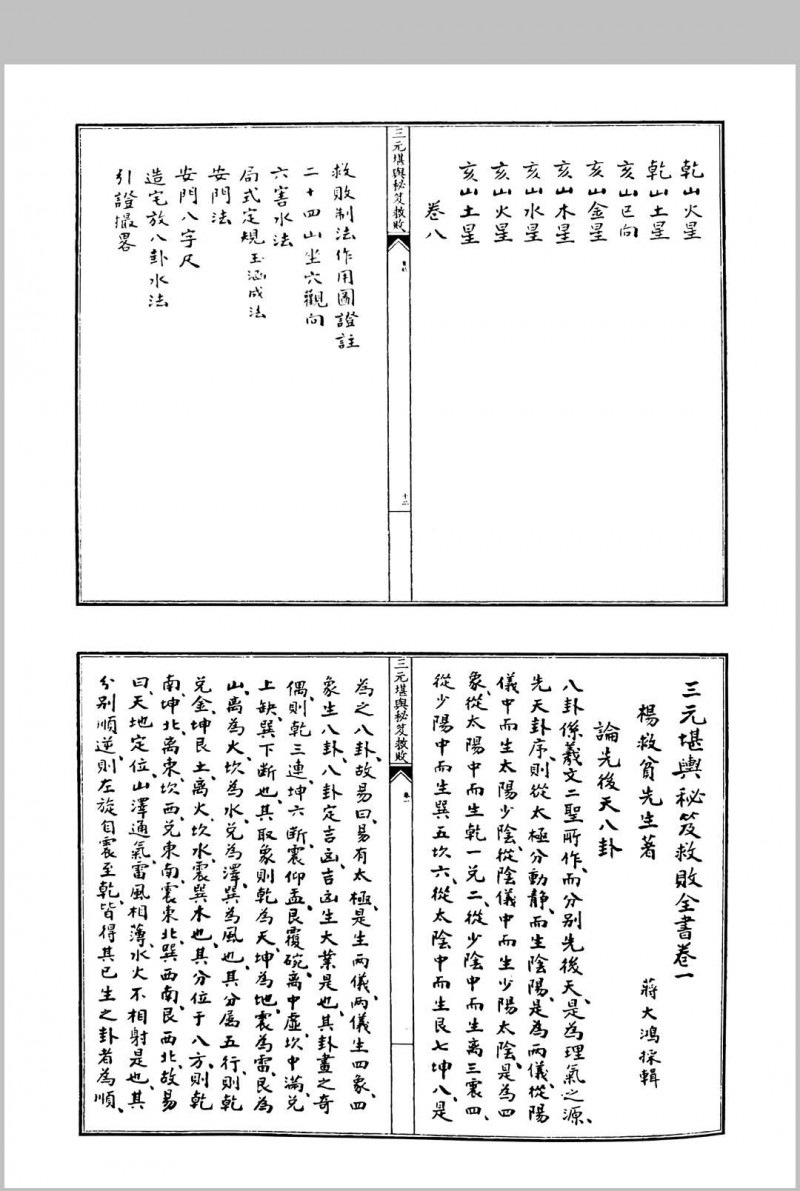 乾山火星
乾山土星
亥山巳向
亥山金星
亥山木星
亥山水星
亥山火星
亥山土星
卷八
三元堪輿秘笈救敗
十二
救敗制法作用圖證註
二十四山坐穴觀向
六害水法
局式定規玉涵成法
安門法
安門八字尺
造宅放八卦水法
引證撮畧
三元堪輿秘笈救敗全書卷一
楊救貧先生著 蔣大鴻採輯
論先後天八卦
八卦係羲文二聖所作、而分別先後天、是為理氣之源、
先天卦序、則從太極分動靜、而生陰陽、是為兩儀、從陽
儀中而生太陽少陰、從陰儀中而生少陽太陰、是為四
象、從太陽中而生乾一兌二、從少陰中而生離三震四、
從少陽中而生巽五坎六、從太陰中而生艮七坤八、是
三元堪輿秘笈救敗
卷一
為之八卦、故易曰、易有太極、是生兩儀、兩儀生四象、四
象生八卦、八卦定吉凶、吉凶生大業是也、其卦畫之奇
偶、則乾三連、坤六斷、震仰盂、艮覆碗、離中虛、坎中滿、兌
上缺、巽下斷也、其取象、則乾為天、坤為地、震為雷、艮為
山、離為火、坎為水、兌為澤、巽為風也、其分属五行、則乾
兌金、坤艮土、離火、坎水、震巽木也、其分位于八方、則乾
南、坤北、離東、坎西、兌東南、震東北、巽西南、艮西北、故易
曰、天地定位、山澤通氣、雷風相薄、水火不相射是也、其
分別順逆、則左旋自震至乾、皆得其已生之卦者為順、